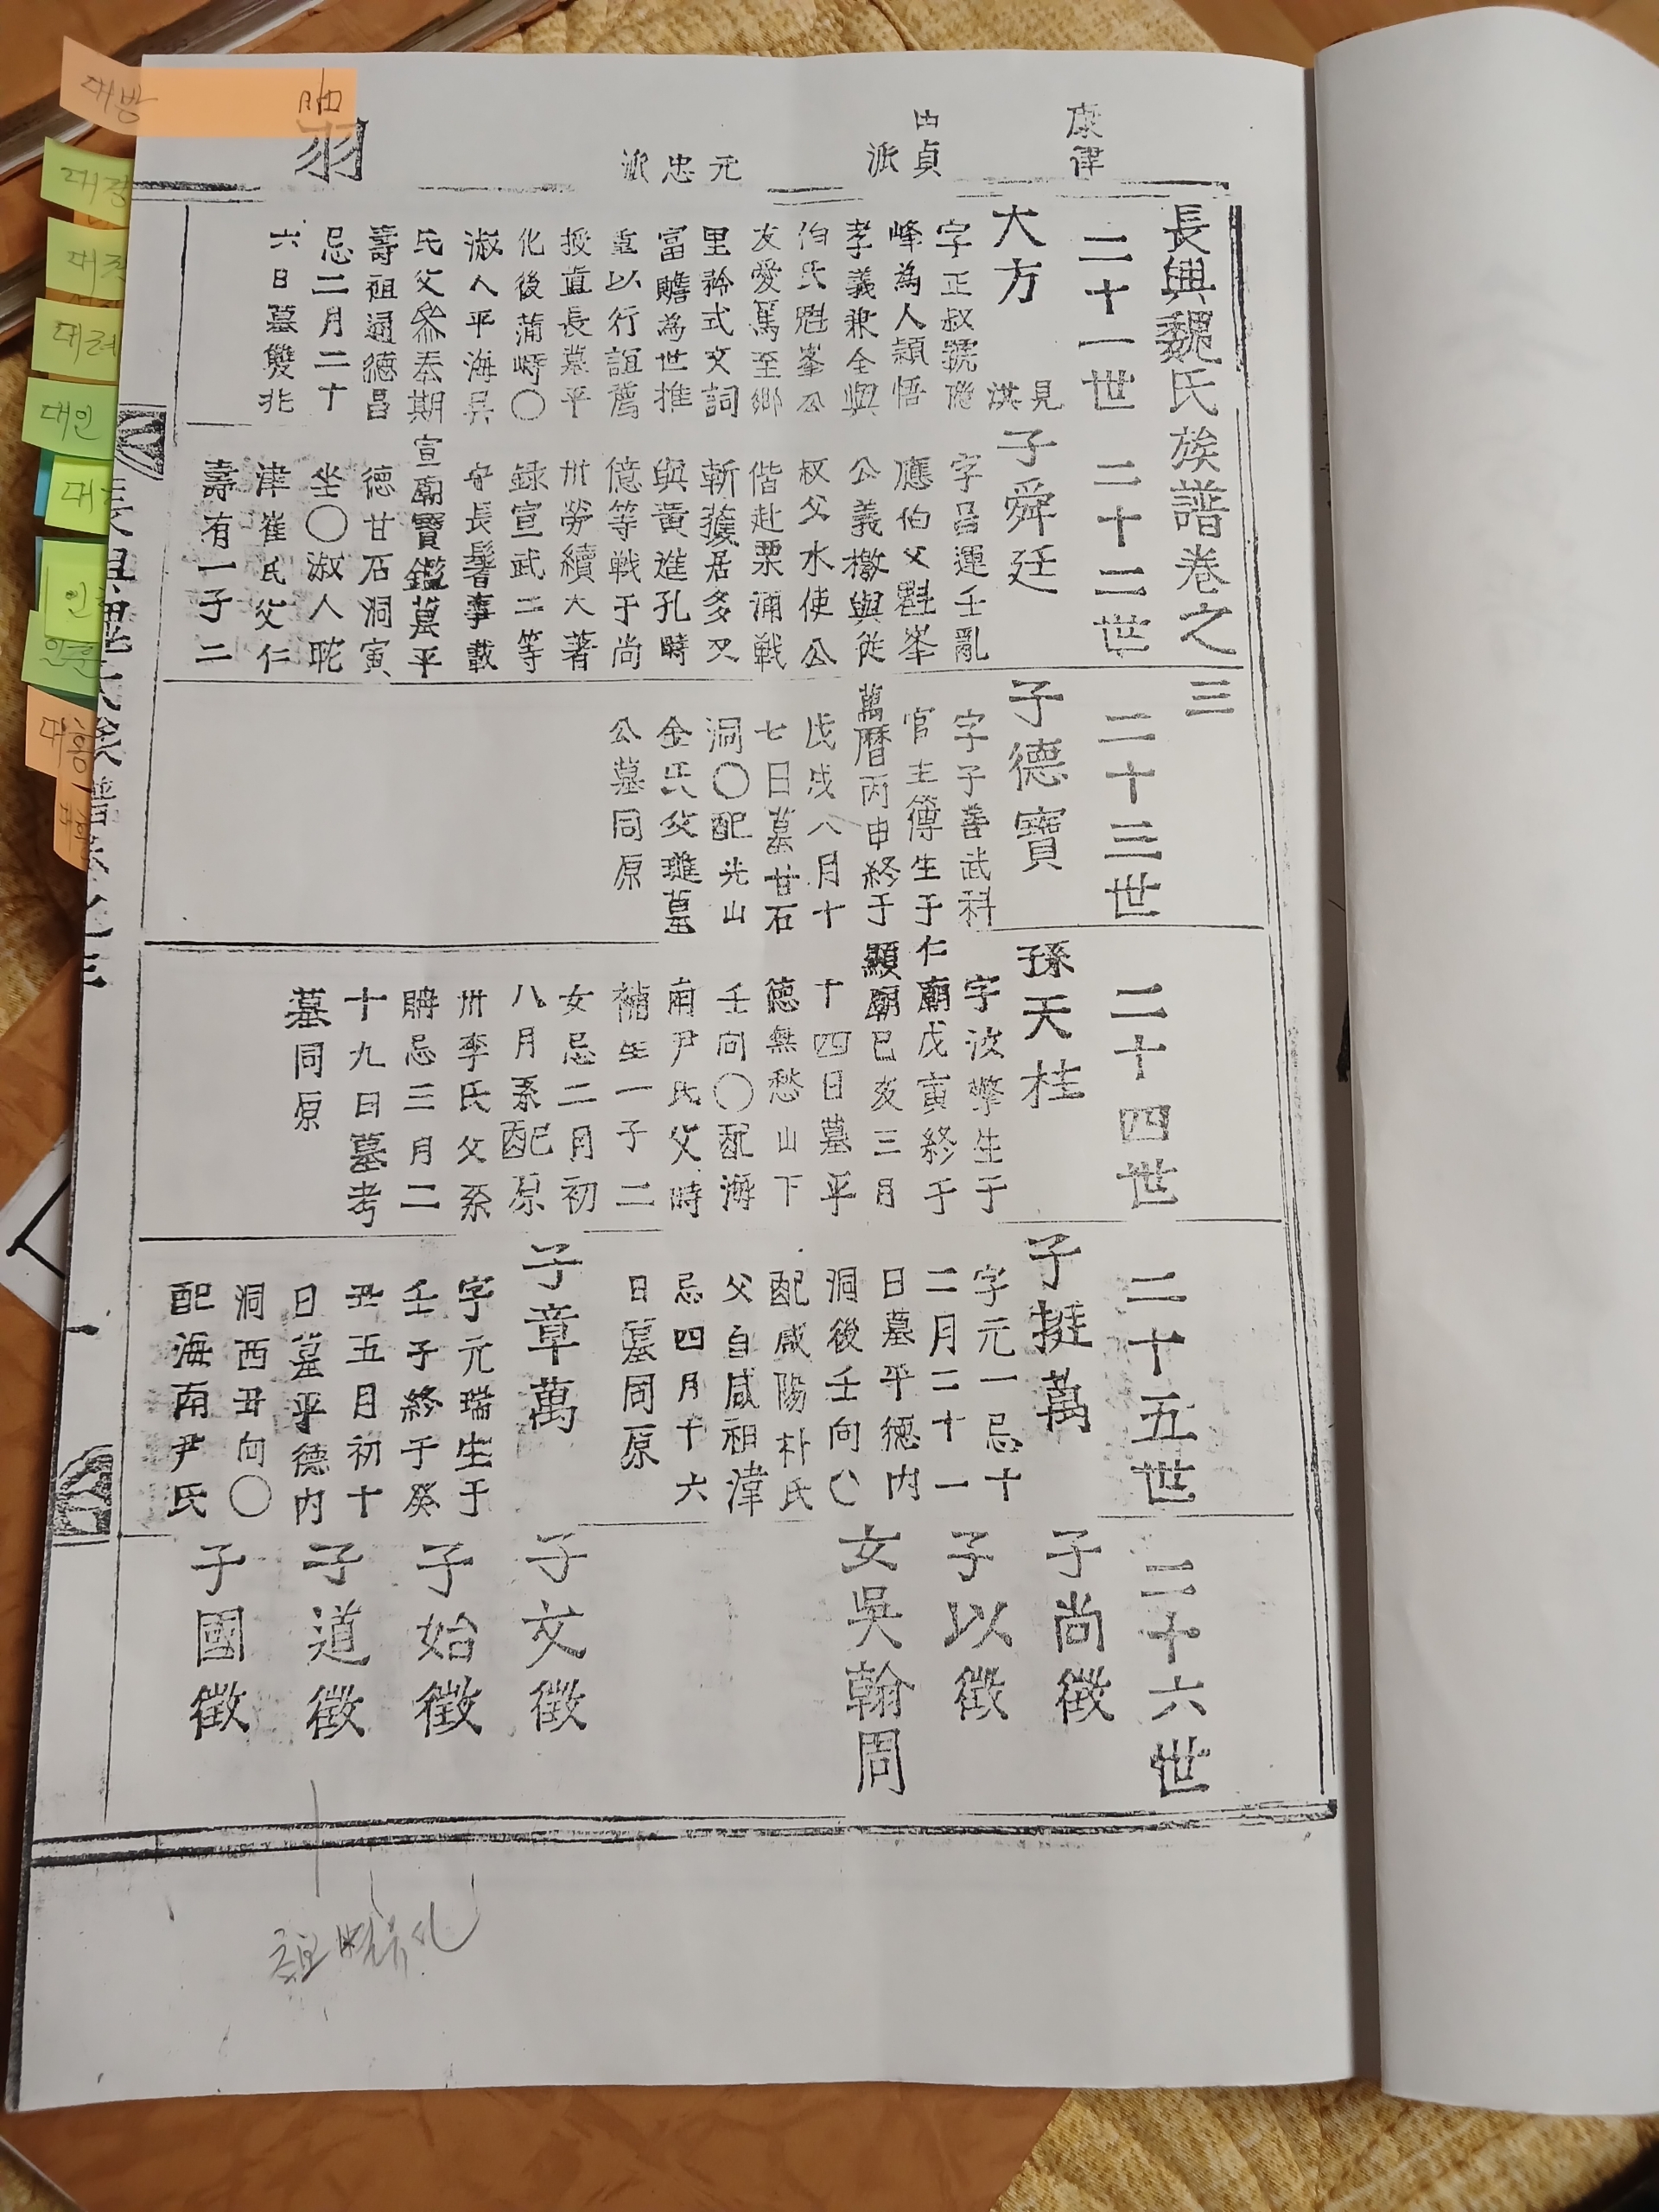 康律
由貞派
元忠派
羽
長興魏氏族譜卷之三
二十一世
大方
見淇
字正叔號
峰為人穎悟
孝義兼全與
伯氏魁峯公
友愛篤至鄉
里矜式文詞
富贍為世推
重以行誼薦
授直長墓平
化後蒲嵵○
淑人平海吳
氏父參奉期
壽祖通德昌
忌二月二十
六日墓雙兆
二十二世
子舜廷
字昌運壬亂
應伯父魁峯
公義檄與從
叔父水使公
偕赴栗浦戰
斬獲居多又
與黃進孔時
億等戰于尚
州勞續大著
録宣武二等
守長鬐事載
宣廟寶鑑墓平
德甘石洞寅
坐○淑人耽
津崔氏父仁
壽有一子二
二十三世
子德寶
字子善武科
官主簿生于
萬曆丙申終于
戊戌八月十
七日墓甘石
洞○配光山
金氏父璡墓
公墓同原
二十四世
孫天柱
字波擎生于
仁廟戊寅終于
顯廟己亥三月
十四日墓平
德無愁山下
壬向○配海
南尹氏父時
補生一子二
女忌二月初
八月系配原
州李氏父系
聃忌三月二
十九日墓考
墓同原
二十五世
子挺萬
字元一忌十
二月二十一
日墓平德內
洞後壬向○
配咸陽朴氏
父自咸祖湋
忌四月十六
日墓同原
子章萬
字元瑞生于
壬子終于癸
丑五月初十
日墓平德內
洞西丑向○
配海南尹氏
二十六世
子尚徵
子以徵
女吳翰周
子文徵
子始徵
子道徵
子國徵
대방
대
대
대려
대인
대
인
인
대흥